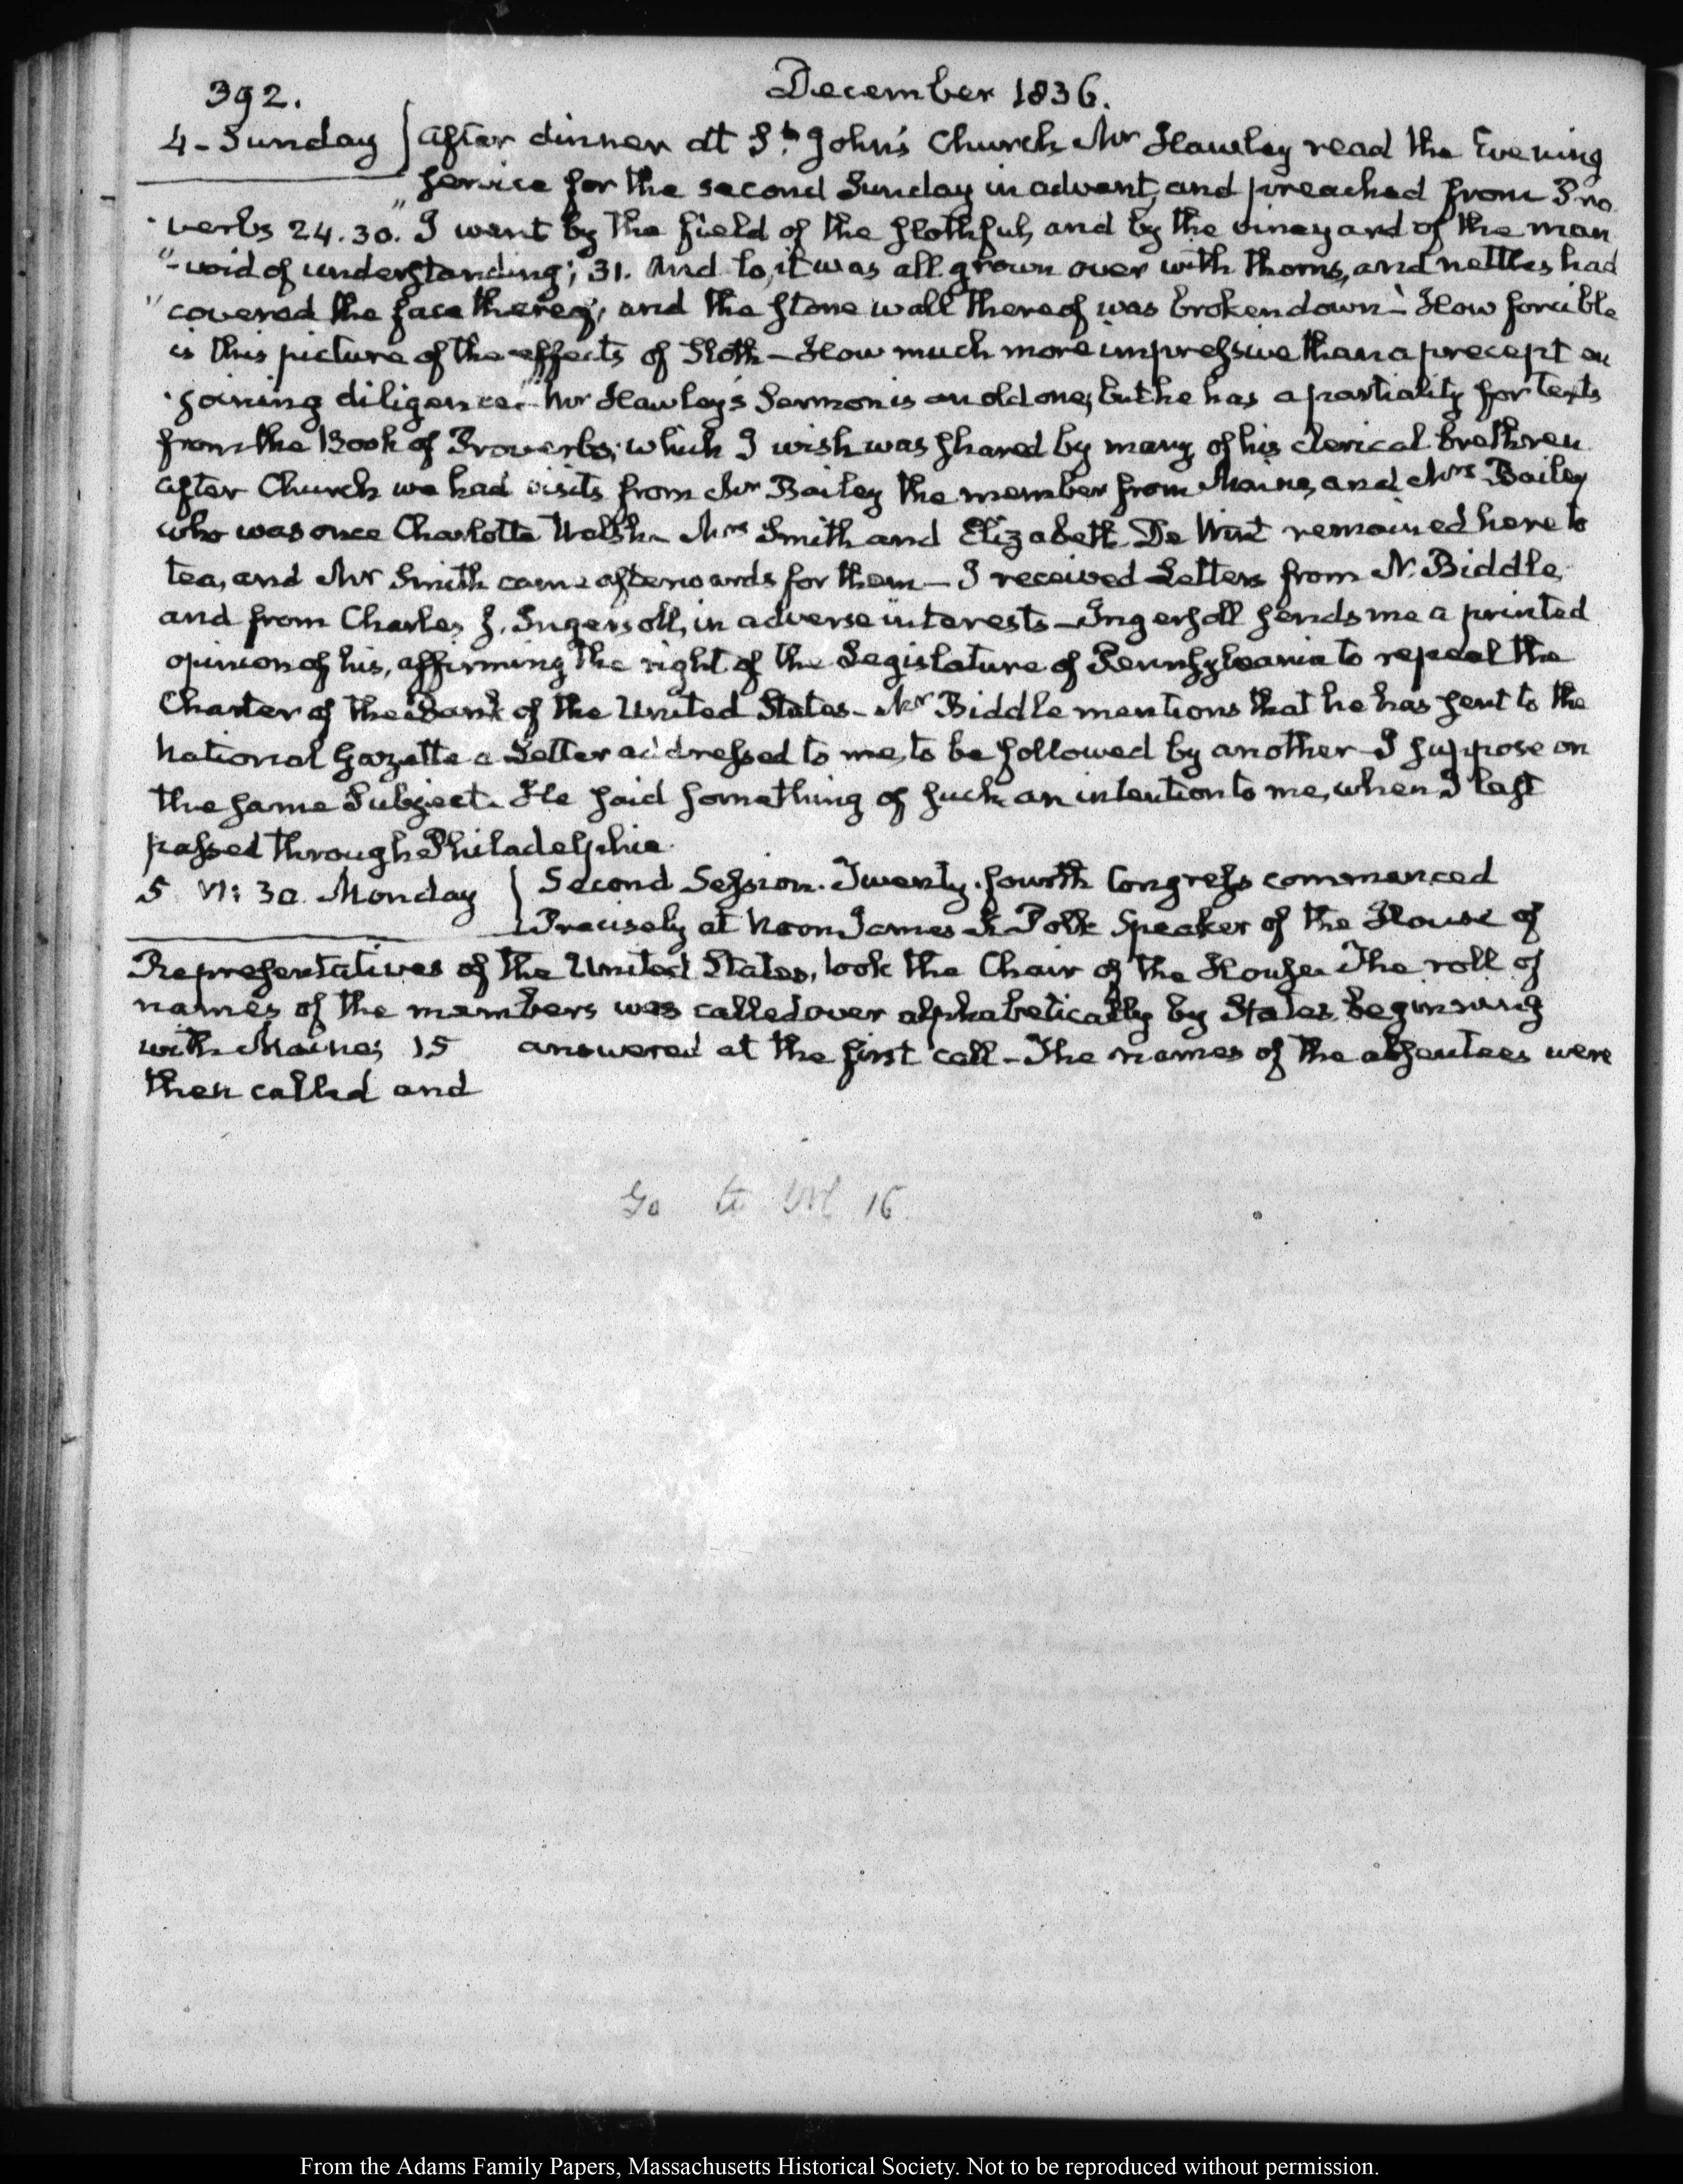 392.
December 1836.
4 - Sunday } after dinner at St. John's Church Mr Hawley read the Evening
Service for the second Sunday in advent, and preached from Pro
verbs 24.30. "I went by the field of the slothful, and by the vineyard of the man
"void of understanding; 31. And lo, it was all grown over with thorns, and nettles had
"covered the face thereof, and the stone wall thereof was broken down" How forcible
is this picture of the effects of Sloth - How much more impressive than a precept en
joining diligence. Mr Hawley's Sermon is an old one, but he has a partiality for texts
from the Book of Proverbs; which I wish was shared by many of his clerical brethren
after Church we had visits from Mr Bailey the member from Maine, and Mrs Bailey
who was once Charlotte Walsh - Mrs Smith and Elizabeth De Wint remained here to
tea, and Mr Smith came afterwards for them - I received Letters from N. Biddle,
and from Charles J. Ingersoll, in adverse interests - Ingersoll sends me a printed
opinion of his, affirming the right of the Legislature of Pennsylvania to repeal the
Charter of the Bank of the United States - Mr Biddle mentions that he has sent to the
National Gazette a Letter addressed to me, to be followed by another - I suppose on
the same Subject. He said something of such an intention to me, when I last
passed through Philadelphia.
5 VI: 30. Monday } Second Session. Twenty-fourth Congress commenced
Precisely at Noon James K Polk Speaker of the House of
Representatives of the United States, took the Chair of the House. The roll of
names of the members was called over alphabetically by States beginning
with Maine; 15 answered at the first call - The names of the absentees were
then called and
Go to Vol 16
From the Adams Family Papers, Massachusetts Historical Society. Not to be reproduced without permission.